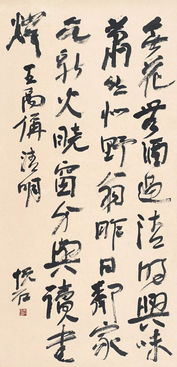 無花無酒過清明興味
蕭然似野僧昨日鄰家
乞新火曉窗分與讀書
燈 王禹偁清明